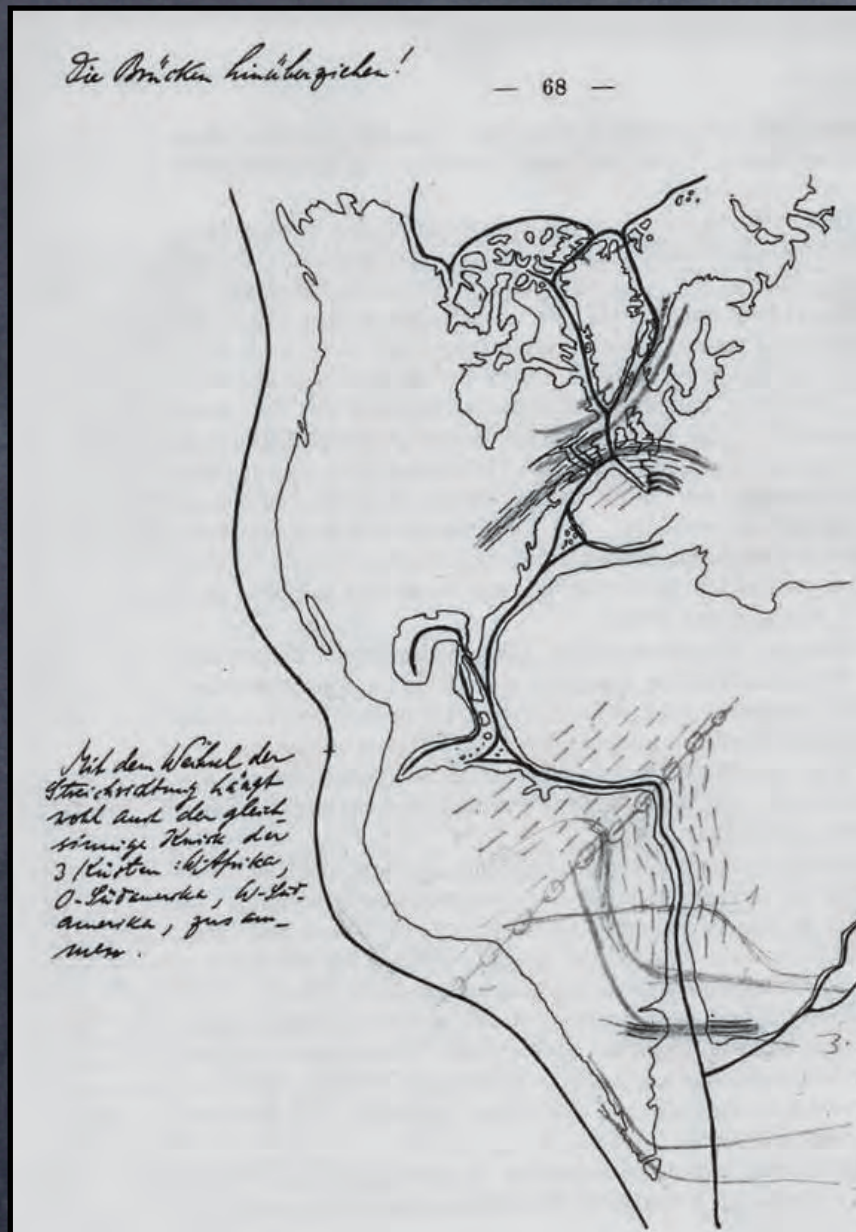 Die Brücken hinüberziehen!
— 68 —
Mit dem Wechsel der
Streichrichtung hängt
wohl auch der gleich-
sinnige Knick der
3 Küsten: W-Afrika,
O-Südamerika, W-Süd-
amerika, zusam-
men.
1
3.